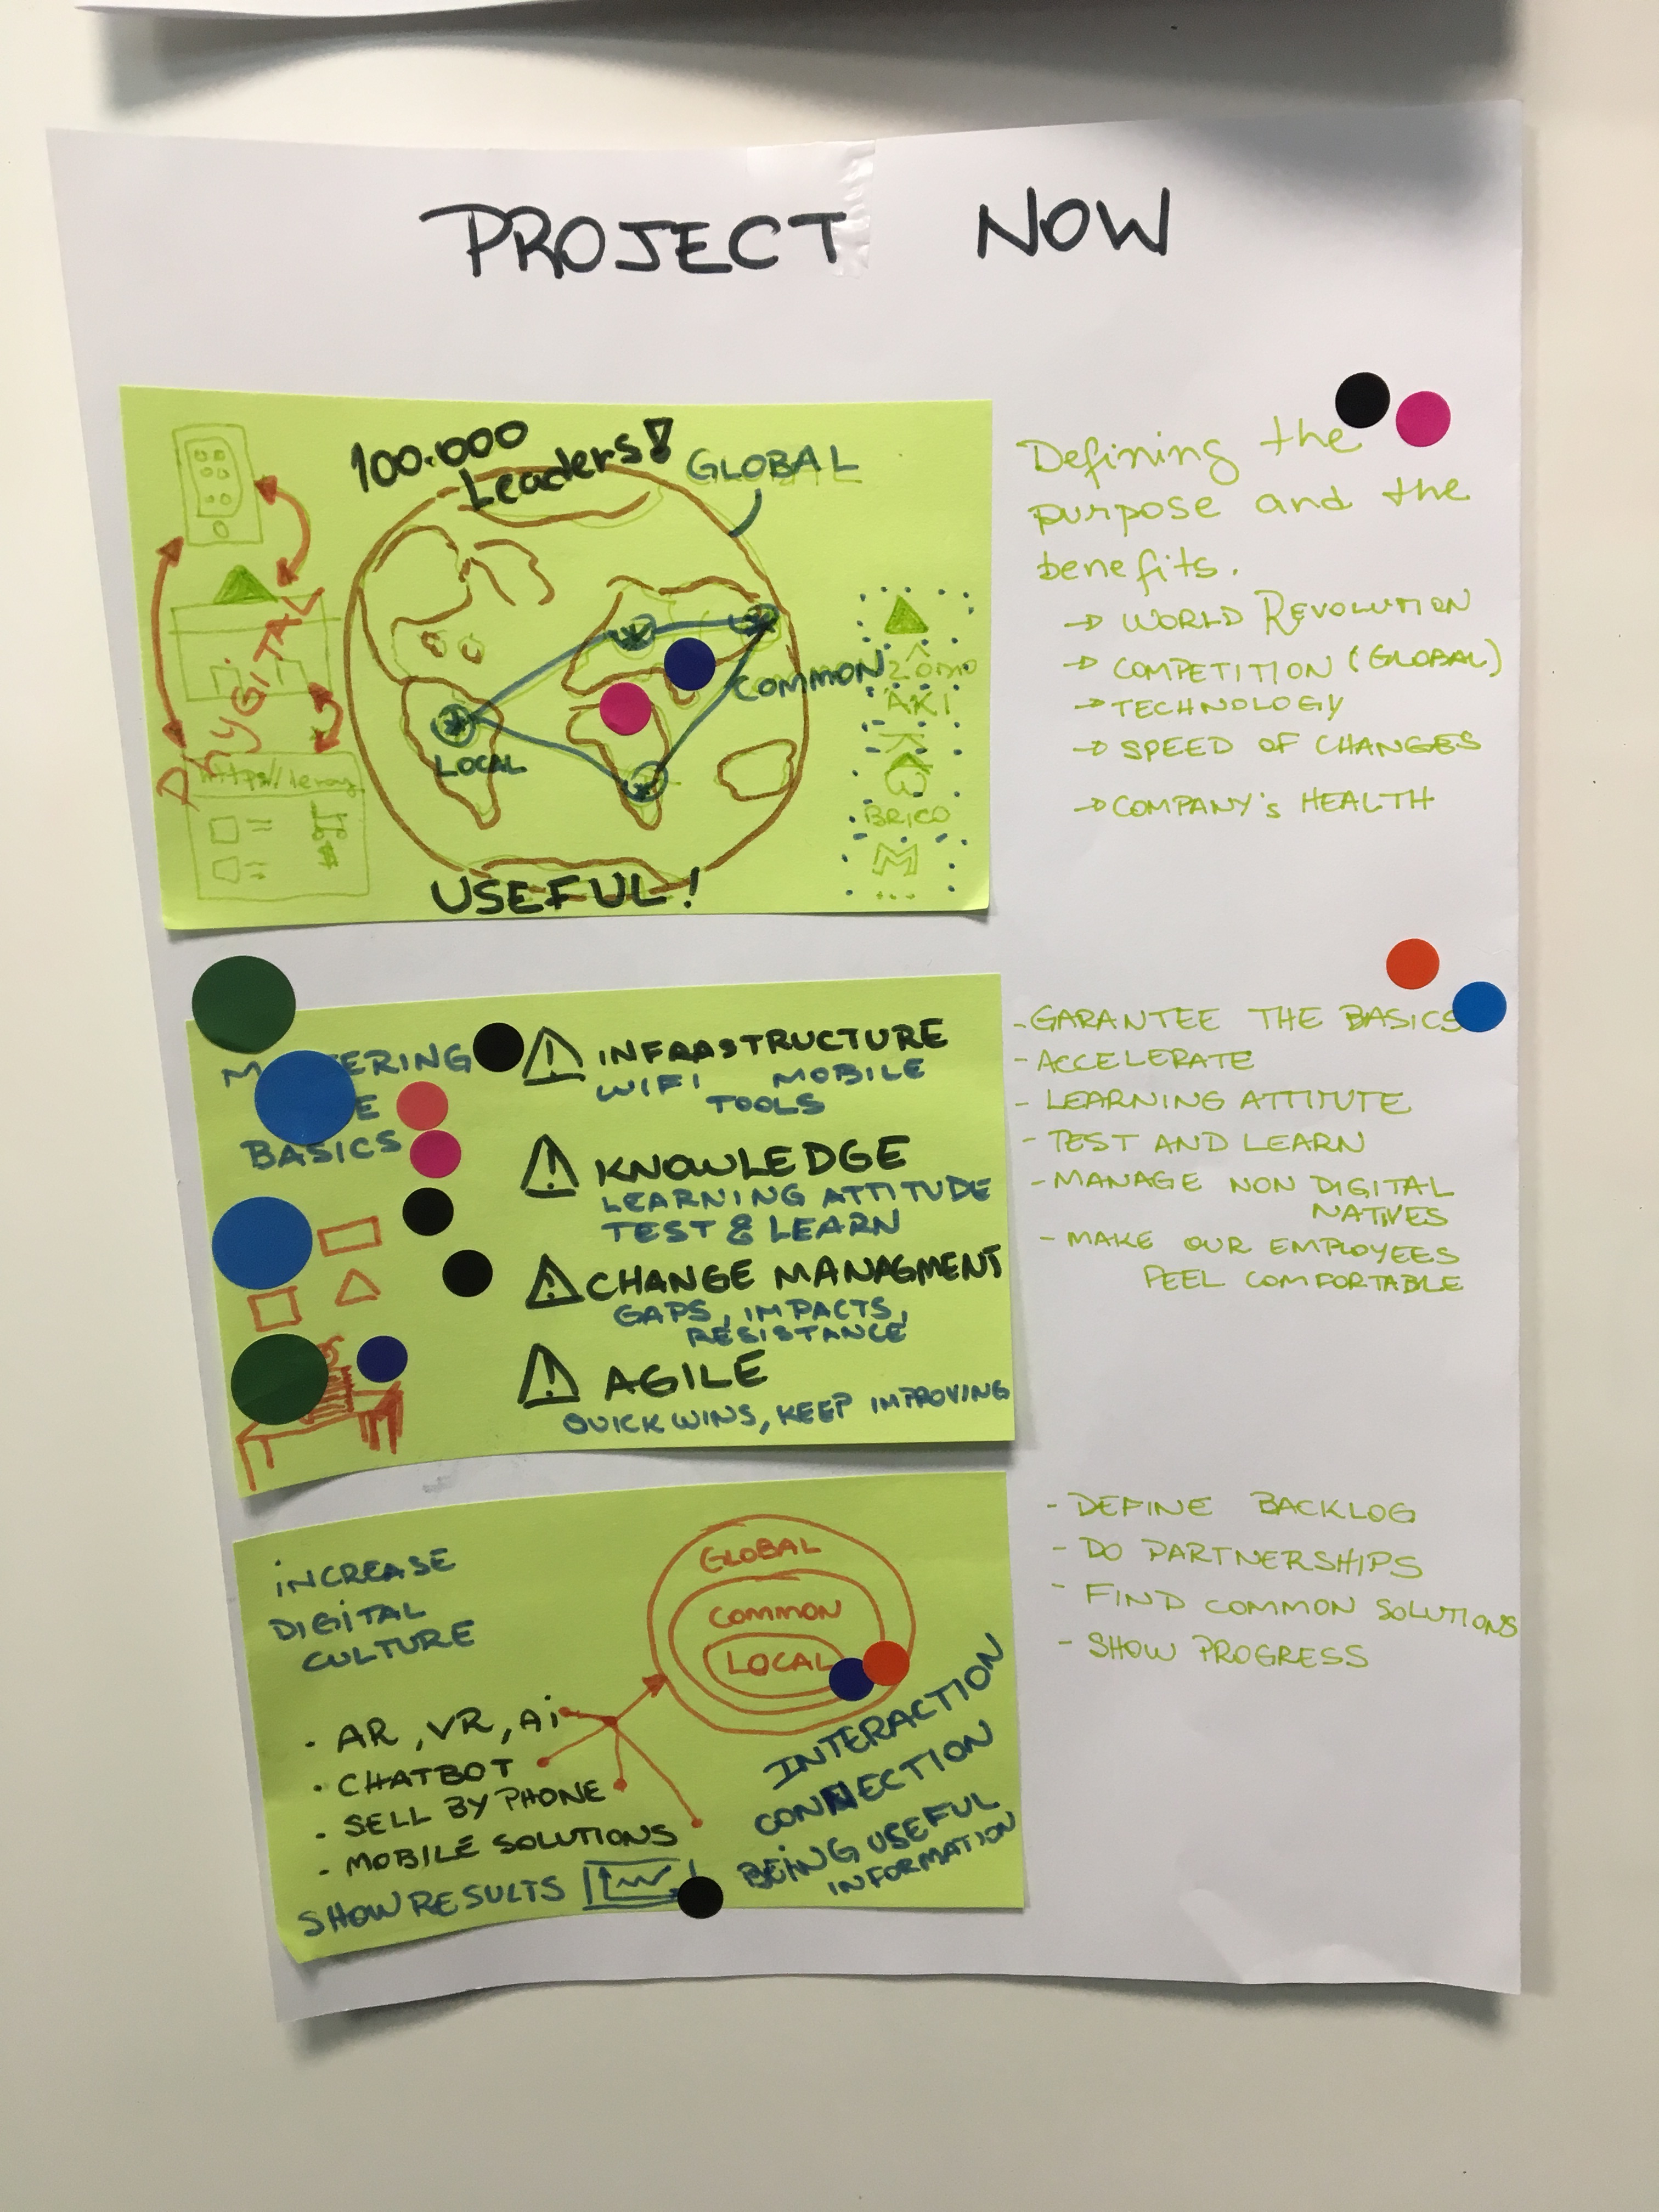 PROJECT NOW
100.000
Leaders!
GLOBAL
PHYGITAL
COMMON
LOCAL
AKI
BRICO
M
...
USEFUL!
Defining the
purpose and the
benefits.
→ WORLD REVOLUTION
→ COMPETITION (GLOBAL)
→ TECHNOLOGY
→ SPEED OF CHANGES
→ COMPANY'S HEALTH
BASICS
INFRASTRUCTURE
WIFI MOBILE
TOOLS
KNOWLEDGE
LEARNING ATTITUDE
TEST & LEARN
CHANGE MANAGMENT
GAPS, IMPACTS,
RESISTANCE
AGILE
QUICK WINS, KEEP IMPROVING
- GARANTEE THE BASICS
- ACCELERATE
- LEARNING ATTITUTE
- TEST AND LEARN
- MANAGE NON DIGITAL
NATIVES
- MAKE OUR EMPLOYEES
FEEL COMFORTABLE
iNCREASE
DIGITAL
CULTURE
GLOBAL
COMMON
LOCAL
· AR, VR, Ai
· CHATBOT
· SELL BY PHONE
· MOBILE SOLUTIONS
SHOW RESULTS
INTERACTION
CONNECTION
BEiNG USEFUL
INFORMATION
- DEFINE BACKLOG
- DO PARTNERSHIPS
- FIND COMMON SOLUTIONS
- SHOW PROGRESS